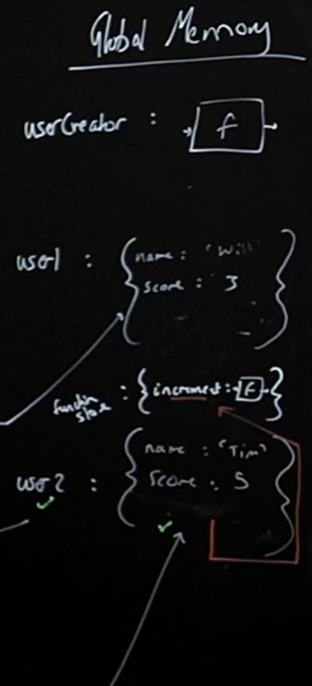 Global Memory
userCreator : f
user1 : { name : 'Will'
score : 3 }
function store : { increment : f }
user2 : { name : 'Tim'
score : 5 }